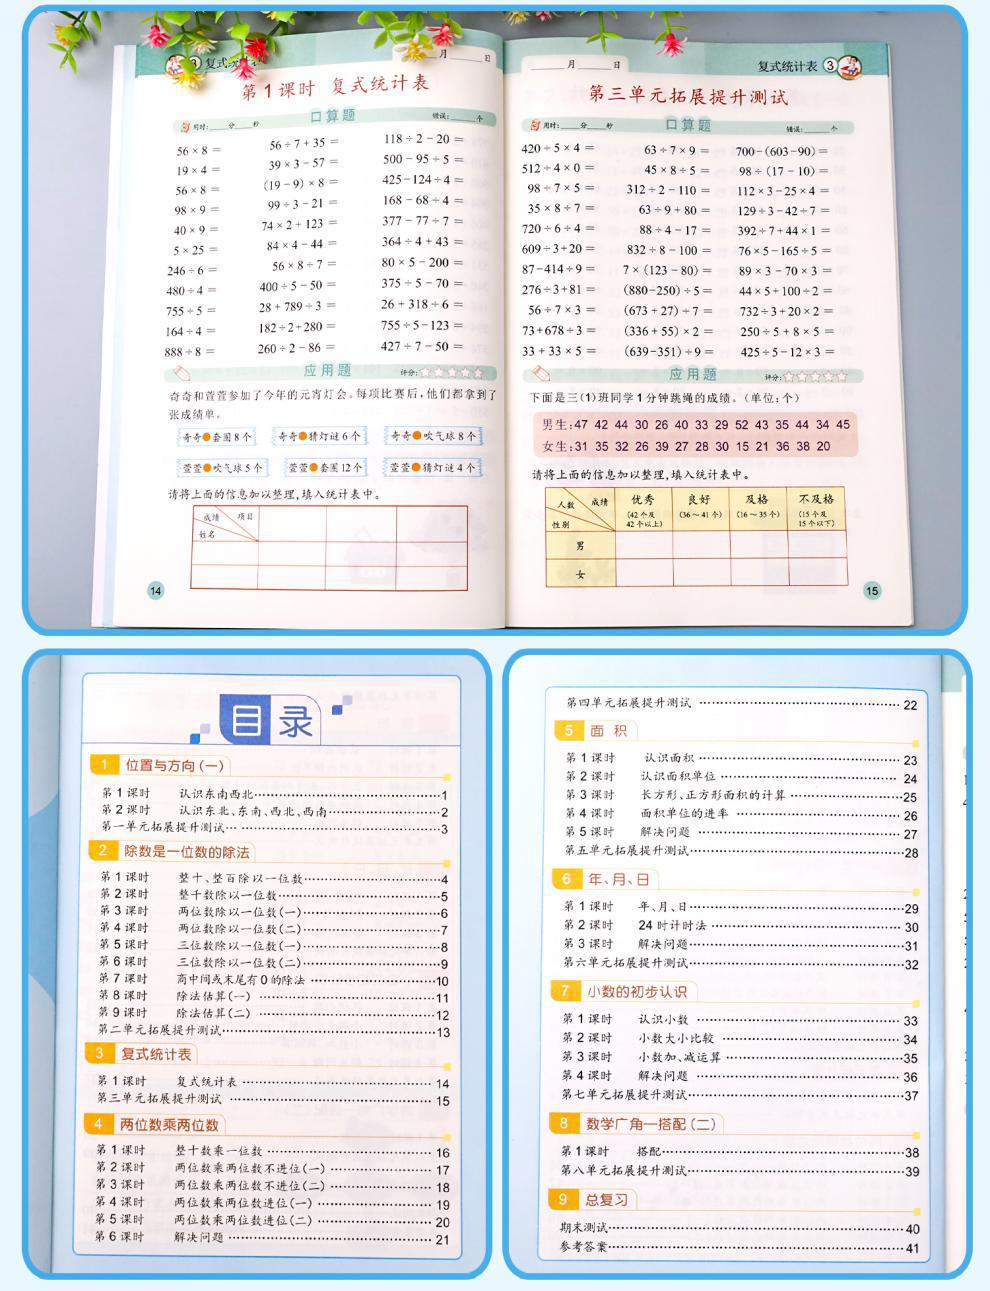 3 复式统计表
月 日
第1课时 复式统计表
口算题
用时:____分____秒 错误:____个
56×8＝ 56÷7+35＝ 118÷2－20＝
19×4＝ 39×3－57＝ 500－95÷5＝
56×8＝ (19－9)×8＝ 425－124÷4＝
98×9＝ 99÷3－21＝ 168－68÷4＝
40×9＝ 74×2+123＝ 377－77÷7＝
5×25＝ 84×4－44＝ 364÷4+43＝
246÷6＝ 56×8÷7＝ 80×5－200＝
480÷4＝ 400÷5－50＝ 375÷5－70＝
755÷5＝ 28+789÷3＝ 26+318÷6＝
164÷4＝ 182÷2+280＝ 755÷5－123＝
888÷8＝ 260÷2－86＝ 427÷7－50＝
应用题
评分:
奇奇和萱萱参加了今年的元宵灯会。每项比赛后,他们都拿到了
张成绩单。
奇奇●套圈8个 奇奇●猜灯谜6个 奇奇●吹气球8个
萱萱●吹气球5个 萱萱●套圈12个 萱萱●猜灯谜4个
请将上面的信息加以整理,填入统计表中。
成绩 项目
姓名
14
____月____日 复式统计表 3
第三单元拓展提升测试
口算题
用时:____分____秒 错误:____个
420÷5×4＝ 63÷7×9＝ 700－(603－90)＝
512÷4×0＝ 45×8÷5＝ 98÷(17－10)＝
98÷7×5＝ 312÷2－110＝ 112×3－25×4＝
35×8÷7＝ 63÷9+80＝ 129÷3－42÷7＝
720÷6÷4＝ 88÷4－17＝ 392÷7+44×1＝
609÷3+20＝ 832÷8－100＝ 76×5－165÷5＝
87－414÷9＝ 7×(123－80)＝ 89×3－70×3＝
276÷3+81＝ (880－250)÷5＝ 44×5+100÷2＝
56÷7×3＝ (673+27)÷7＝ 732÷3+20×2＝
73+678÷3＝ (336+55)×2＝ 250÷5+8×5＝
33+33×5＝ (639－351)÷9＝ 425÷5－12×3＝
应用题
评分:
下面是三(1)班同学1分钟跳绳的成绩。(单位:个)
男生:47 42 44 30 26 40 33 29 52 43 35 44 34 45
女生:31 35 32 26 39 27 28 30 15 21 36 38 20
请将上面的信息加以整理,填入统计表中。
人数 成绩 性别 优秀 良好 及格 不及格
(42个及42个以上) (36～41个) (16～35个) (15个及15个以下)
男
女
15
目录
1 位置与方向(一)
第1课时 认识东南西北 1
第2课时 认识东北、东南、西北、西南 2
第一单元拓展提升测试 3
2 除数是一位数的除法
第1课时 整十、整百除以一位数 4
第2课时 整千数除以一位数 5
第3课时 两位数除以一位数(一) 6
第4课时 两位数除以一位数(二) 7
第5课时 三位数除以一位数(一) 8
第6课时 三位数除以一位数(二) 9
第7课时 商中间或末尾有0的除法 10
第8课时 除法估算(一) 11
第9课时 除法估算(二) 12
第二单元拓展提升测试 13
3 复式统计表
第1课时 复式统计表 14
第三单元拓展提升测试 15
4 两位数乘两位数
第1课时 整十数乘一位数 16
第2课时 两位数乘两位数不进位(一) 17
第3课时 两位数乘两位数不进位(二) 18
第4课时 两位数乘两位数进位(一) 19
第5课时 两位数乘两位数进位(二) 20
第6课时 解决问题 21
第四单元拓展提升测试 22
5 面积
第1课时 认识面积 23
第2课时 认识面积单位 24
第3课时 长方形、正方形面积的计算 25
第4课时 面积单位的进率 26
第5课时 解决问题 27
第五单元拓展提升测试 28
6 年、月、日
第1课时 年、月、日 29
第2课时 24时计时法 30
第3课时 解决问题 31
第六单元拓展提升测试 32
7 小数的初步认识
第1课时 认识小数 33
第2课时 小数大小比较 34
第3课时 小数加、减运算 35
第4课时 解决问题 36
第七单元拓展提升测试 37
8 数学广角—搭配(二)
第1课时 搭配 38
第八单元拓展提升测试 39
9 总复习
期末测试 40
参考答案 41